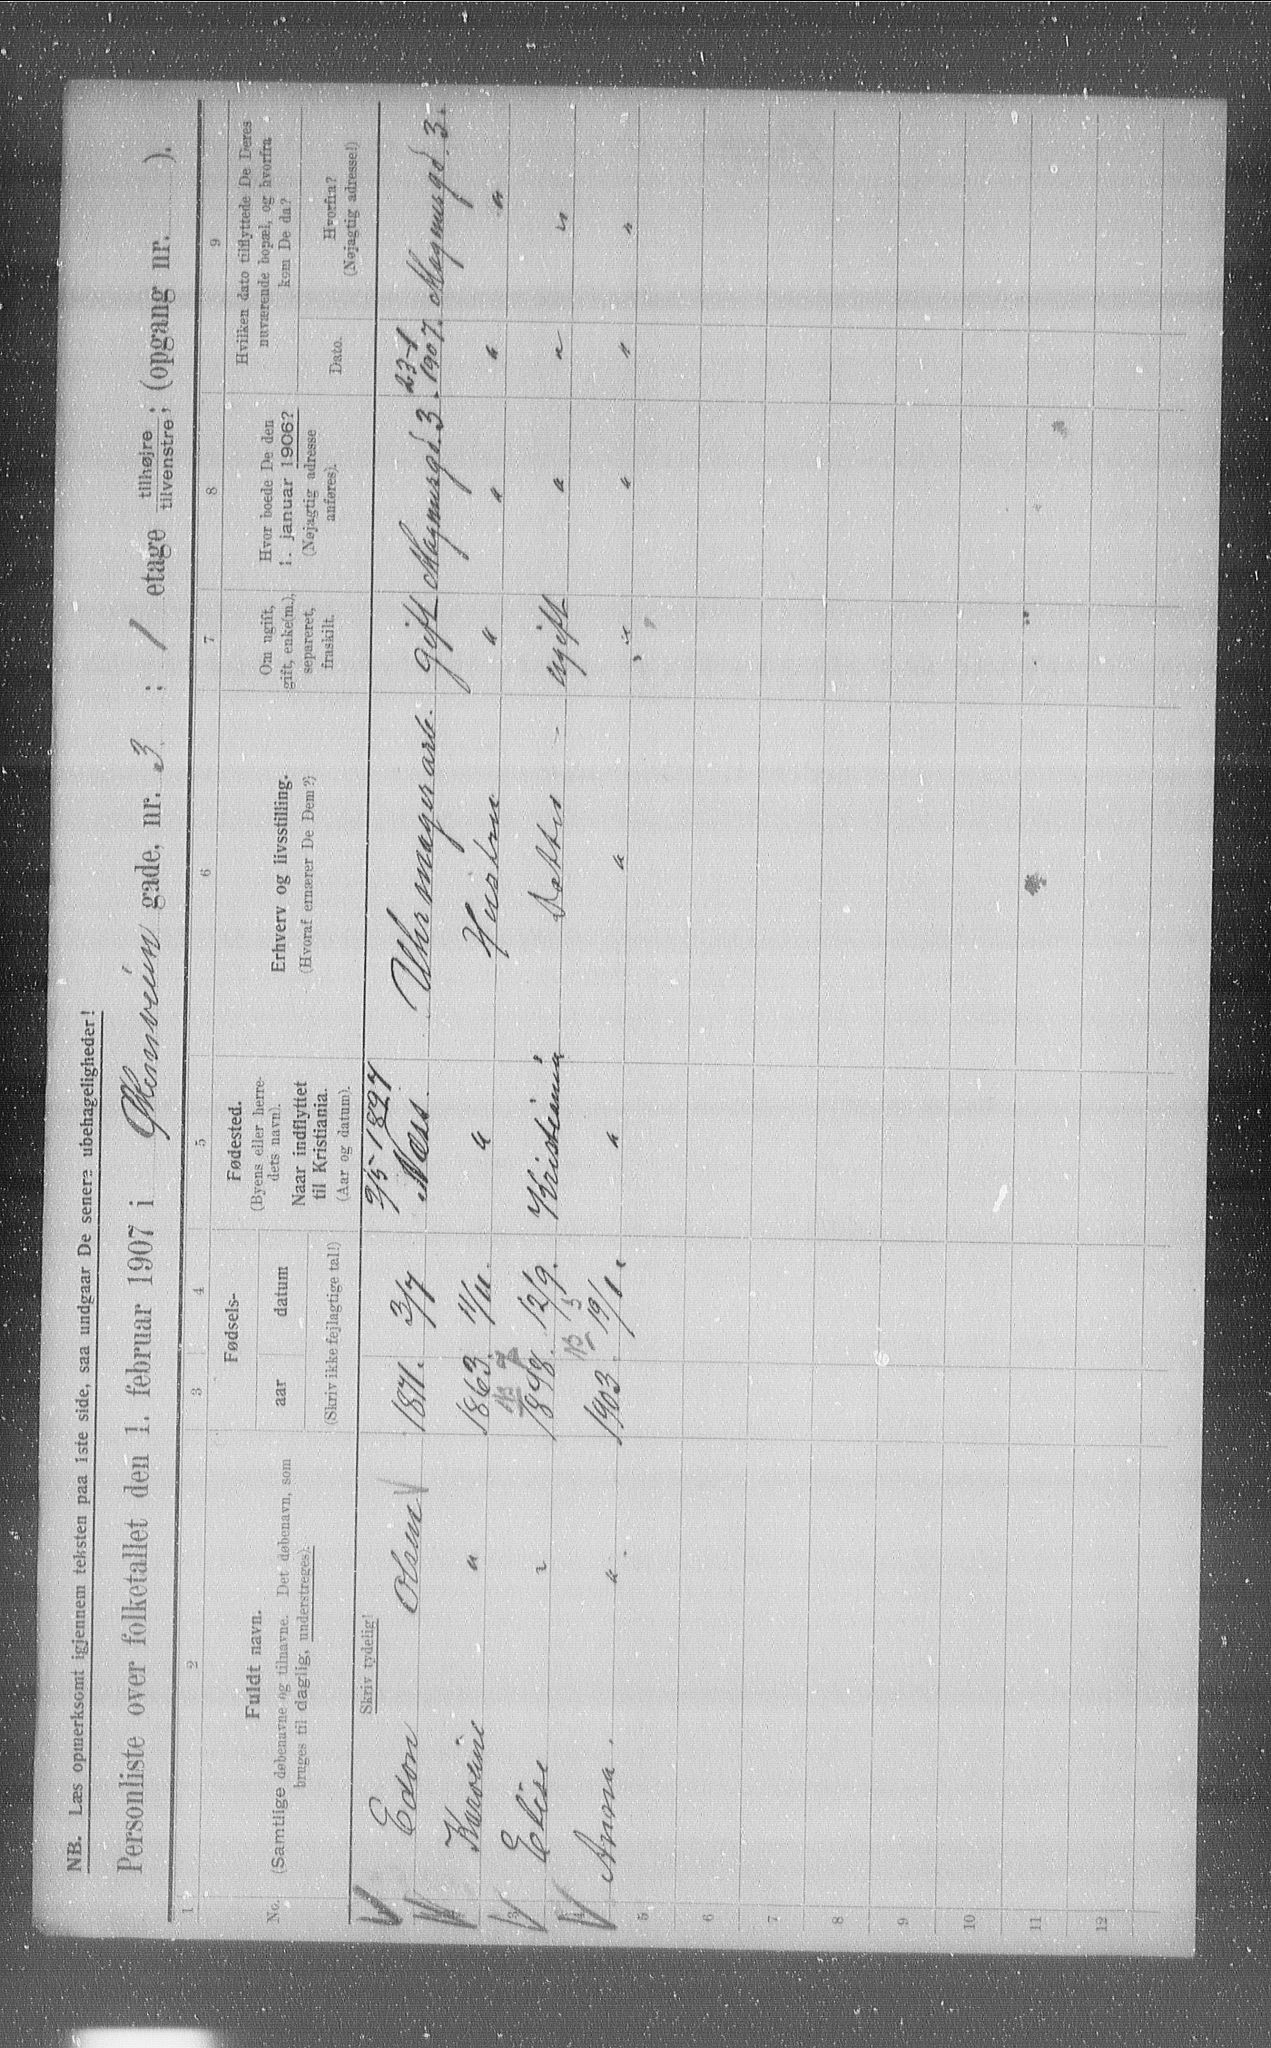 NB. Læs opmerksomt igjennem teksten paa 1ste side, saa undgaar De senere ubehageligheder!
Personliste over folketallet den 1. februar 1907 i gade, nr. 3 ; 1 etage tilhøjre tilvenstre; (opgang nr. ).
1 2 3 4 5 6 7 8 9
No.
Fuldt navn.
(Samtlige døbenavne og tilnavne. Det døbenavn, som
bruges til daglig, understreges).
Fødsels-
aar datum
(Skriv ikke fejlagtige tal!)
Fødested.
(Byens eller herre-
dets navn).
Naar indflyttet
til Kristiania.
(Aar og datum).
Erhverv og livsstilling.
(Hvoraf ernærer De Dem?)
Om ugift,
gift, enke(m.),
separeret,
fraskilt.
Hvor boede De den
1. januar 1906?
(Nøjagtig adresse
anføres).
Hvilken dato tilflyttede De Deres
nuværende bopæl, og hvorfra
kom De da?
Dato.
Hvorfra?
(Nøjagtig adresse!)
Skriv tydelig!
2/5-1897 23-1
Edon Olsen 1871. 3/7 Næss. Uhrmagerarb. gift Magnusgd. 3. 1907. Magnusgd. 3.
Karoline " 1863. 11/11. " Hustru " " " "
3 Elise " 1898. 12/9. Kristiania Datter - ugift " " "
4 Anna. " 1903. 19/1. " " " " " "
5
6
7
8
9
10
11
12